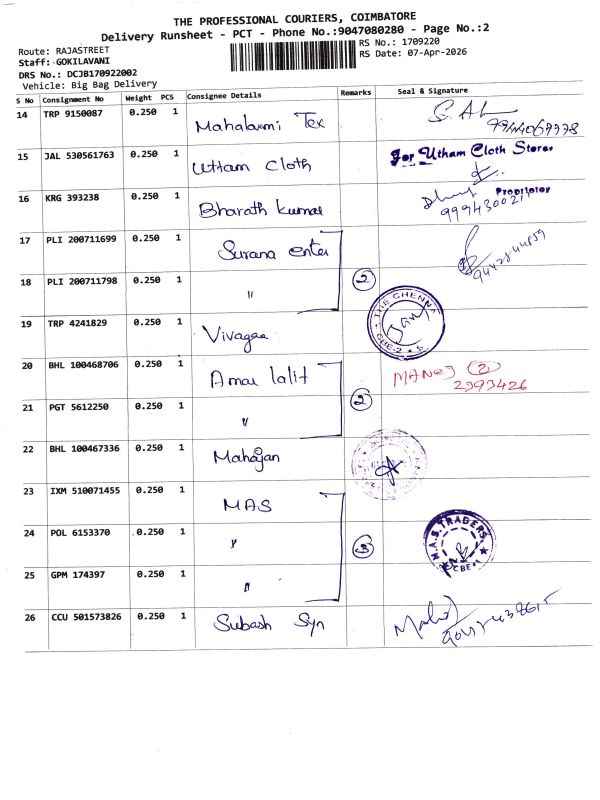 THE PROFESSIONAL COURIERS, COIMBATORE
Delivery Runsheet - PCT - Phone No.:9047080280 - Page No.:2
Route: RAJASTREET
RS No.: 1709220
Staff: GOKILAVANI
RS Date: 07-Apr-2026
DRS No.: DCJB170922002
Vehicle: Big Bag Delivery
S No Consignment No Weight PCS Consignee Details Remarks Seal & Signature
14 TRP 9150087 0.250 1 Mahalaxmi Tex
15 JAL 530561763 0.250 1 Uttam Cloth For Utham Cloth Stores
Proprietor
16 KRG 393238 0.250 1 Bharath Kumar
17 PLI 200711699 0.250 1 Surana enter
18 PLI 200711798 0.250 1 " 2
19 TRP 4241829 0.250 1 Vivagaa THE CHENNA
CBE-2
20 BHL 100468706 0.250 1 Amar lalit MANOJ 2
2393426
21 PGT 5612250 0.250 1 " 2
22 BHL 100467336 0.250 1 Mahajan
23 IXM 510071455 0.250 1 MAS
24 POL 6153370 0.250 1 " 3 M.A.S. TRADERS
CBE-1
25 GPM 174397 0.250 1 "
26 CCU 501573826 0.250 1 Subash Syn